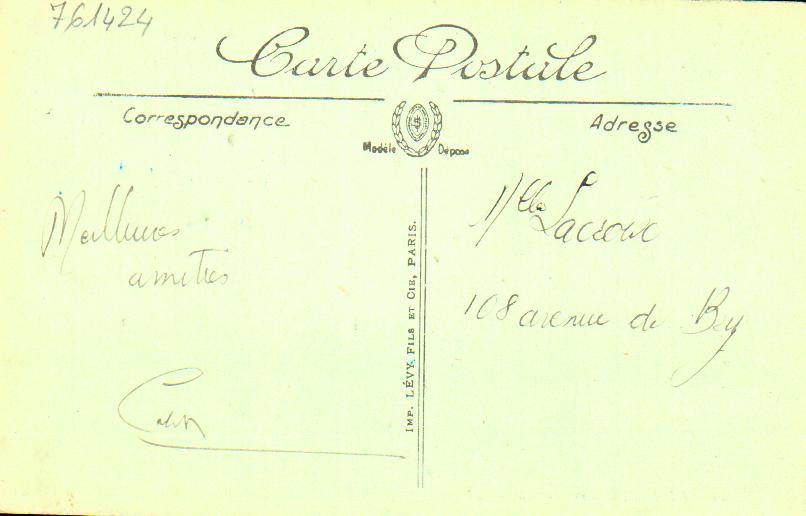 761424
Carte Postale
Correspondance
Adresse
Modèle Déposé
Meilleures
amitiés
IMP. LÉVY FILS ET CIE, PARIS.
Mlle Lacroix
108 avenue de